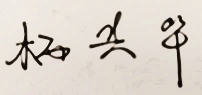 杨兴华